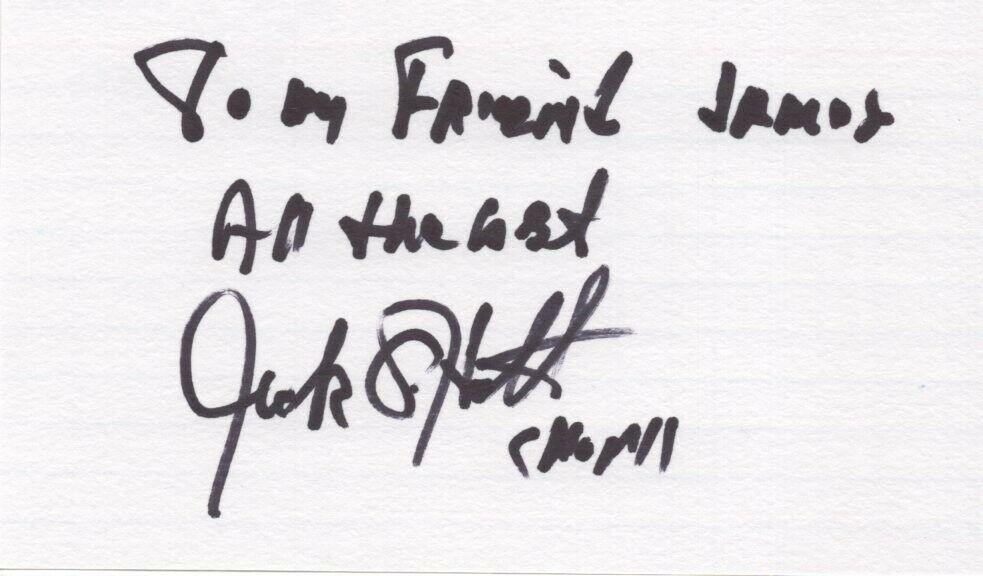 To my FRiend JAMES
All the Best
Jack